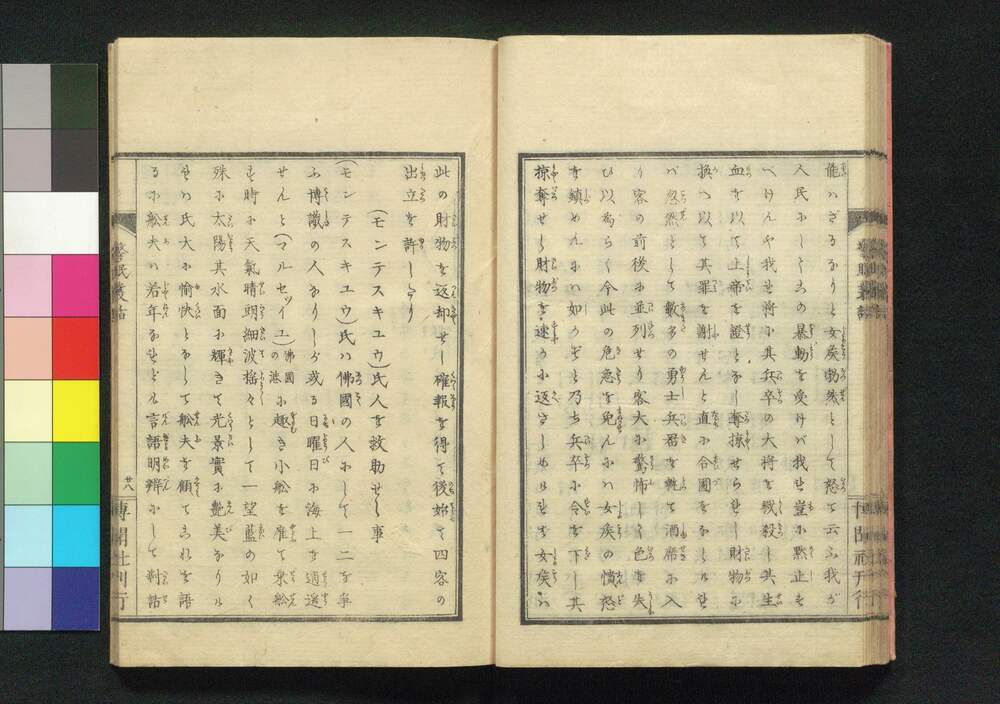 能ハざるなりと女矦勃然として怒て云ふ我が
人民にしてこの暴動を受けバ我れ豈に黙止す
べけんや我れ将に其兵卒の大将を戮殺し其生
血を以て上帝を證となし奪掠せられし財物に
換へ以て其罪を謝せんと直に合圖をなしけれ
バ忽然として數多の勇士兵器を携て酒席に入
り客の前後に並列せり客大に驚怖して色を失
ひ以為らく今此の危急を免んにハ女矦の憤怒
を鎮めんにハ如かずと乃ち兵卒に令を下し其
掠奪せし財物を速かに返さしめけれバ女矦ハ
此の財物を返却せし確報を得て後始て四客の
出立を許しけり
(モンテスキユウ)氏人を救助せし事
(モンテスキユウ)氏ハ佛國の人にして一二を爭
ふ博識の人なりしが或る日曜日に海上を逍遥
せんと(マルセツイユ)佛國の港に趣き小舩を雇て乗舩
す時に天氣晴朗細波揺々として一望藍の如く
殊に太陽其水面に輝きて光景實に艶美なりけ
れハ氏大に愉快となして舩夫を顧てこれを語
るに舩夫ハ若年なれども言語明辨にして對話
廿八
博聞社刊行